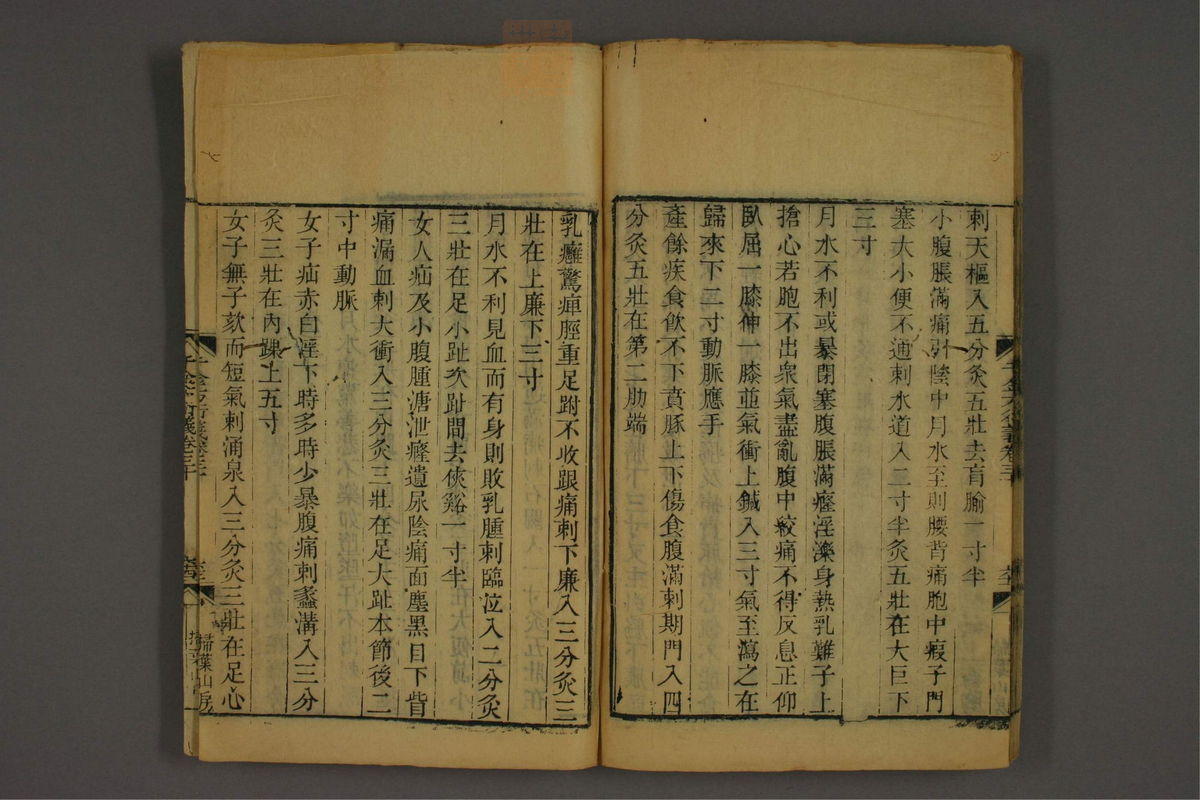 刺天樞入五分灸五壯去肓腧一寸半
小腹脹滿痛引陰中月水至則腰背痛胞中瘕子門
塞大小便不通刺水道入二寸半灸五壯在大巨下
三寸
月水不利或暴閉塞腹脹滿癃淫濼身熱乳難子上
搶心若胞不出衆氣盡亂腹中絞痛不得反息正仰
臥屈一膝伸一膝並氣衝上鍼入三寸氣至瀉之在
歸來下二寸動脈應手
產餘疾食飲不下賁豚上下傷食腹滿刺期門入四
分灸五壯在第二肋端
乳癰驚痺脛重足跗不收跟痛刺下廉入三分灸三
壯在上廉下三寸
月水不利見血而有身則敗乳腫刺臨泣入二分灸
三壯在足小趾次趾間去俠谿一寸半
女人疝及小腹腫溏泄癃遺尿陰痛面塵黑目下眥
痛漏血刺大衝入三分灸三壯在足大趾本節後二
寸中動脈
女子疝赤白淫下時多時少暴腹痛刺蠡溝入三分
灸三壯在內踝上五寸
女子無子欬而短氣刺涌泉入三分灸三壯在足心
掃葉山房